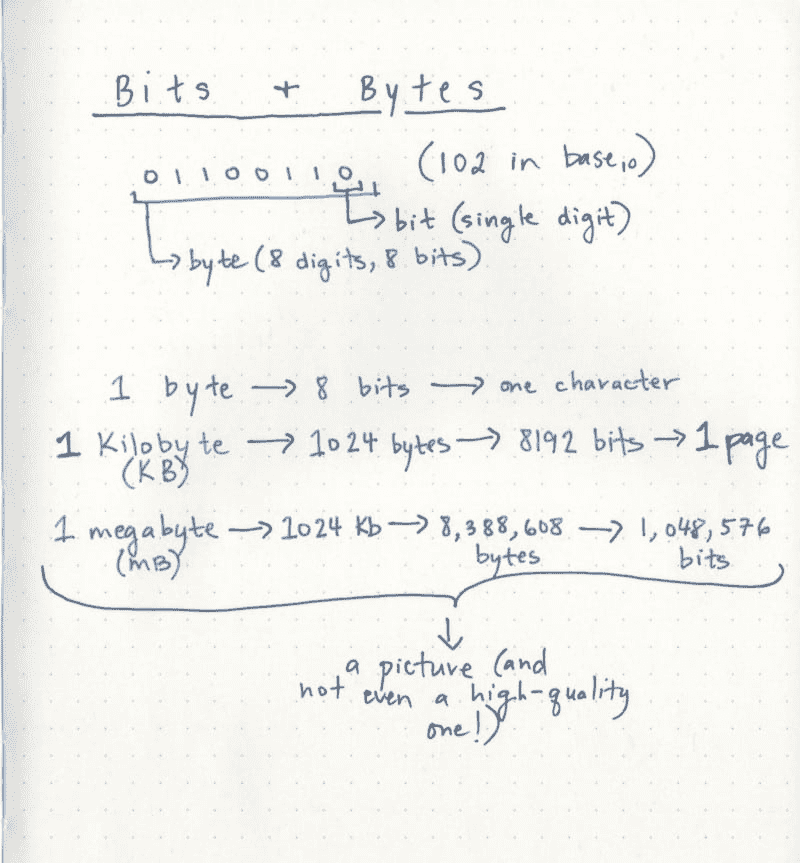 Bits + Bytes
01100110 (102 in base₁₀)
bit (single digit)
byte (8 digits, 8 bits)
1 byte → 8 bits → one character
1 Kilobyte → 1024 bytes → 8192 bits → 1 page
(KB)
1 megabyte → 1024 Kb → 8,388,608 → 1,048,576
(mB) bytes bits
↓
a picture (and
not even a high-quality
one!)